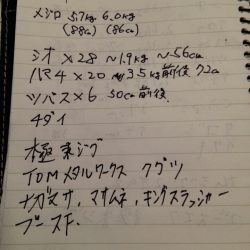 メジロ 5.7kg 6.0kg
(88cm) (86cm)
シオ×28 ~1.9kg ~56cm
ハマチ×20 3.5kg前後 72cm
ツバス×6 50cm前後.
チダイ
極東ジグ
TDMメタルワークス クグツ
ナガマサ, マサムネ, キングスラッシャー
ブースト.